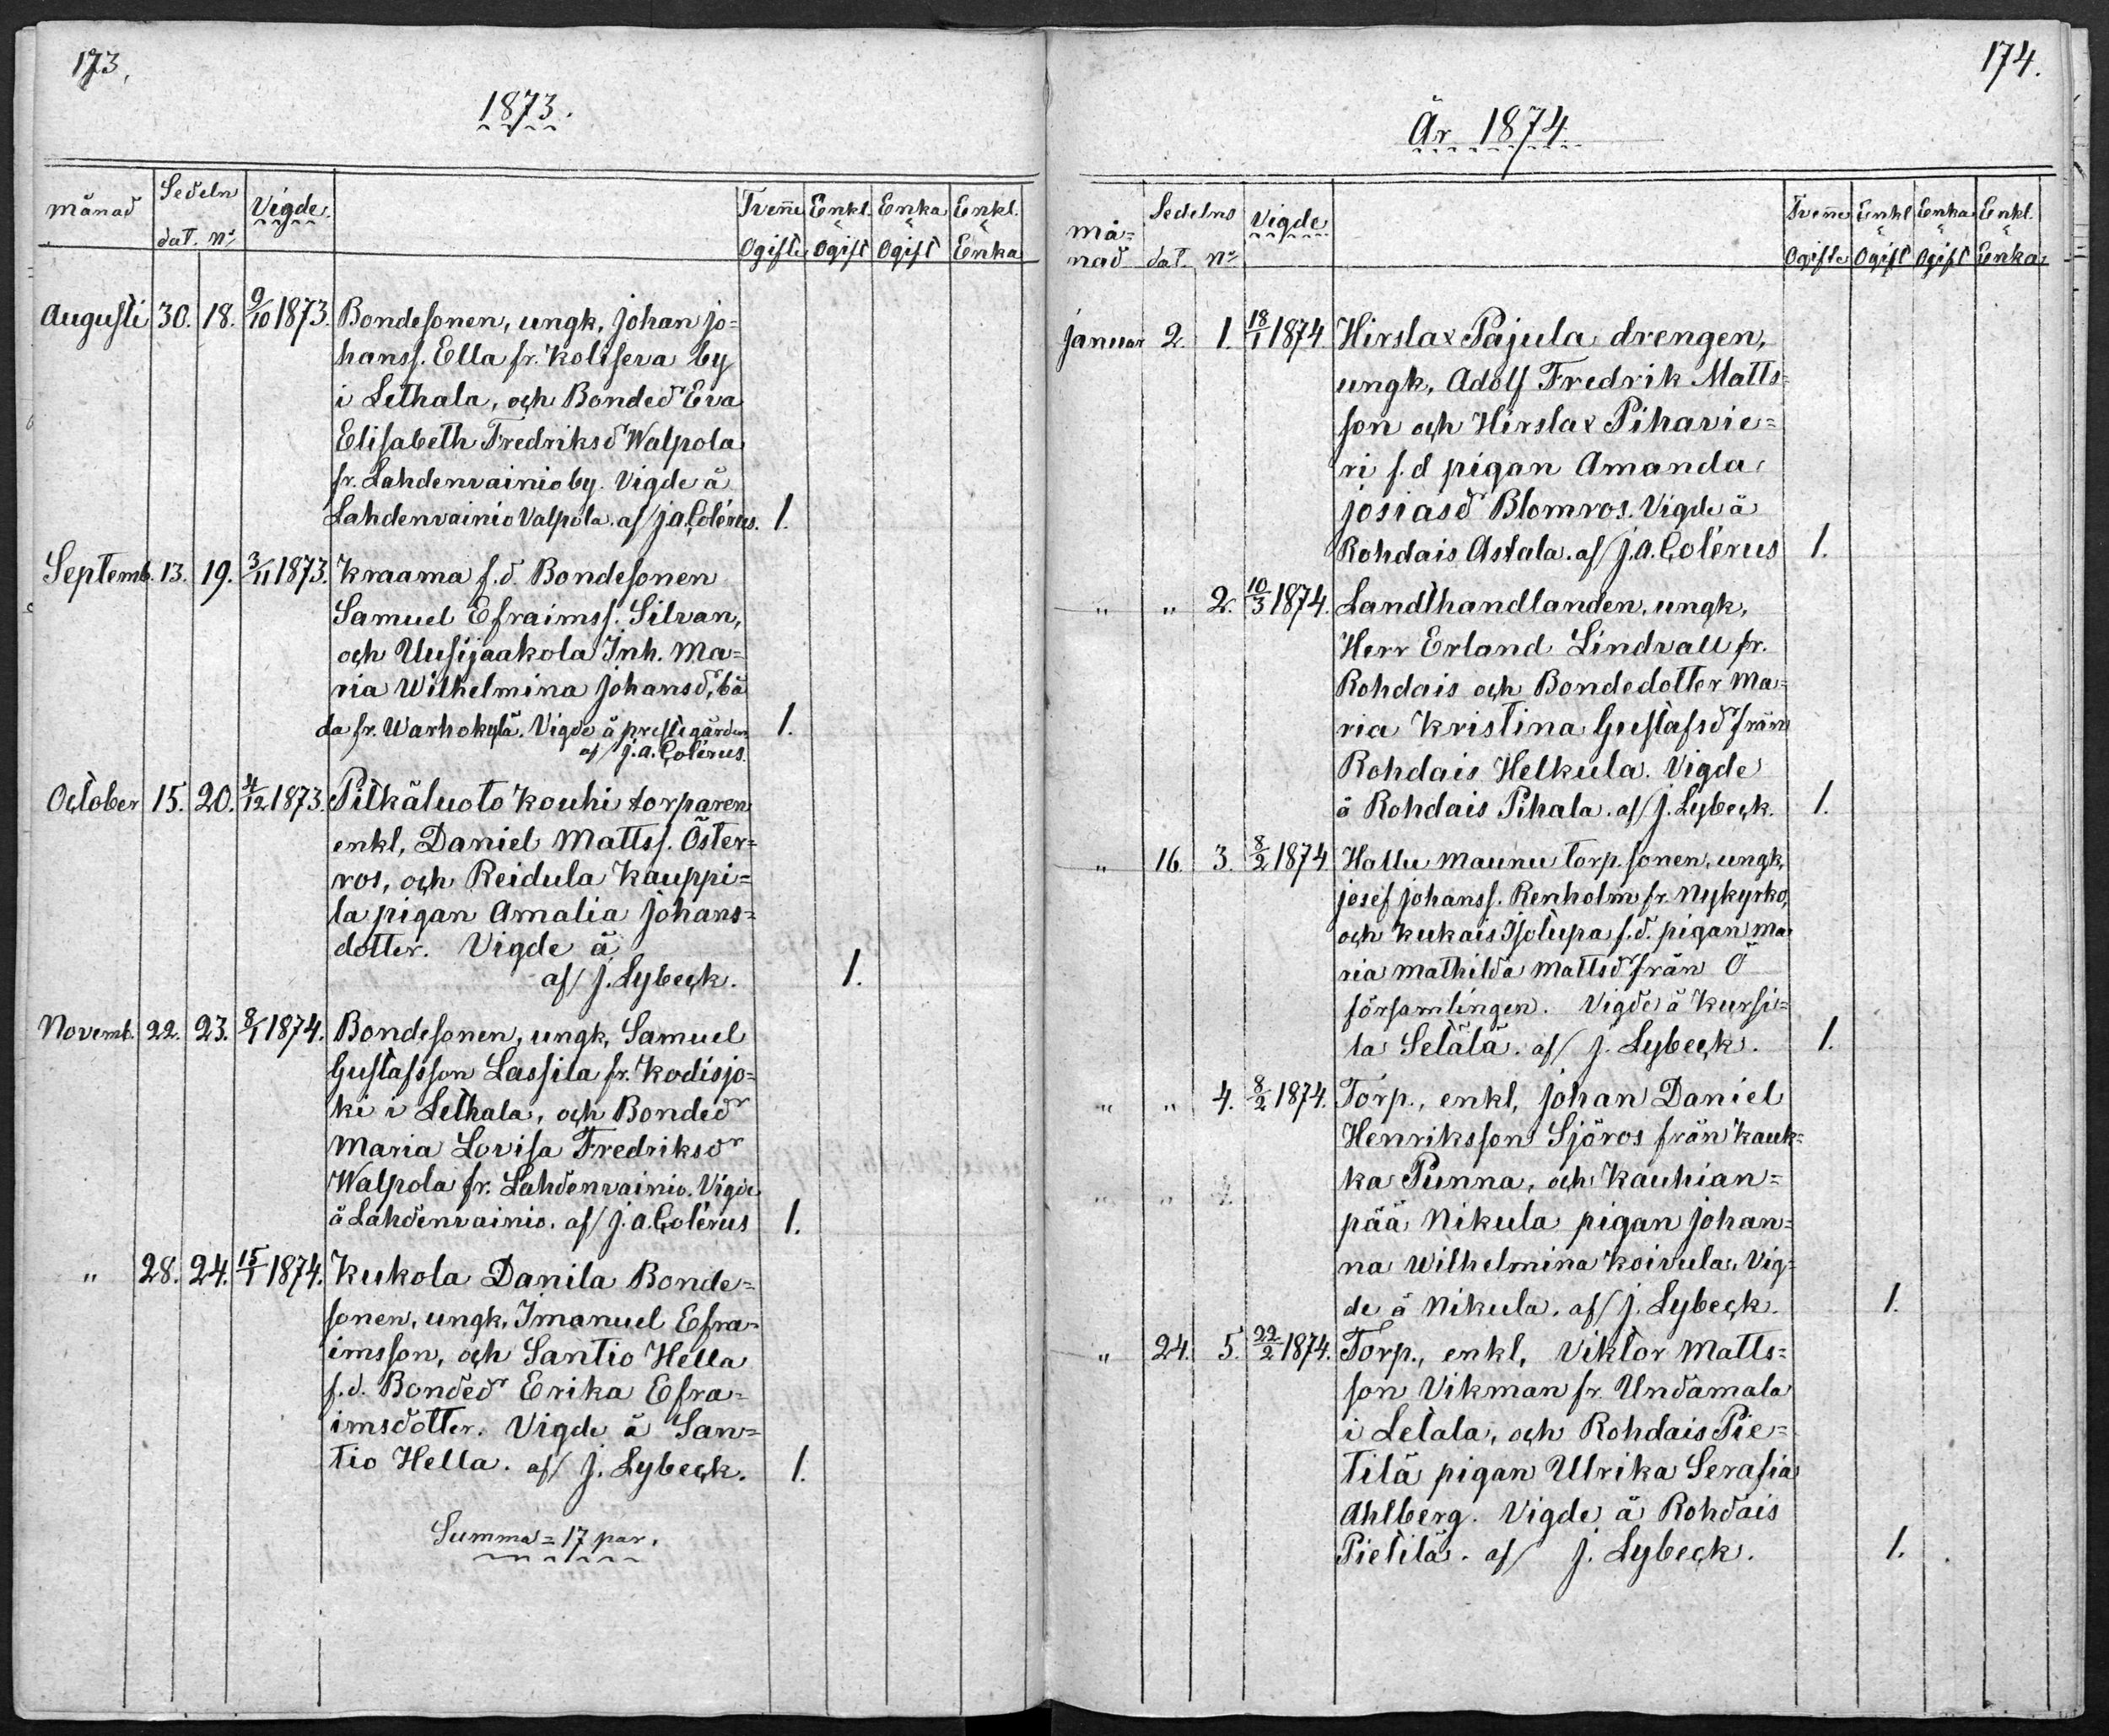 173.
1873.
månad Sedeln Vigde. Tvenne Enkl. Enka Enkl.
dat. No Ogifte Ogift Ogift Enka
Augusti 30. 18. 9/10 1873. Bondesonen, ungk, Johan Jo=
hanss. Ella fr. Koliseva by
i Lethala, och Bonded Eva
Elisabeth Fredriksd Walpola
fr. Lahdenvainio by. Vigde å
Lahdenvainio Valpola. af J.A. Colérus. 1.
Septemb. 13. 19. 3/11 1873. Kraama f.d. Bondesonen
Samuel Efraimss. Silvan,
och Uusijaakola Inh. Ma=
ria Wilhelmina Johansd, bå
da fr. Warhokylä. Vigde å prestegården 1.
af J.A. Colérus.
October 15. 20. 4/12 1873. Pitkäluoto Kouhi torparen
enkl, Daniel Mattss. Öster=
ros, och Reidula Kauppi=
la pigan Amalia Johans=
dotter. Vigde å
af J. Lybeck. 1.
Novemb. 22. 23. 8/1 1874. Bondesonen, ungk, Samuel
Gustafsson Lassila fr. Kodisjo=
ki i Lethala, och Bondedr
Maria Lovisa Fredriksdr
Walpola fr. Lahdenvainio. Vigde
å Lahdenvainio. af J.A. Colérus 1.
" 28. 24. 15/1 1874. Kukola Danila Bonde=
sonen, ungk, Imanuel Efra=
imsson, och Santio Hella
f.d. Bondedr Erika Efra=
imsdotter. Vigde å San=
tio Hella. af J. Lybeck. 1.
Summa = 17 par.
174.
År 1874.
må= Sedelns Vigde Tvenne Enkl Enka Enkl.
nad dat. No Ogifte Ogift Ogift Enka
Januar 2. 1. 18/1 1874 Hirslax Pajula drengen,
ungk, Adolf Fredrik Matts=
son och Hirslax Pihavie=
ri f.d pigan Amanda
Josiasd Blomros. Vigde å
Rohdais Astala. af J.A. Colérus 1.
" " 2. 10/3 1874. Landthandlanden, ungk,
Herr Erland Lindvall fr.
Rohdais och Bondedotter Ma=
ria Kristina Gustafsd från
Rohdais Helkula. Vigde
å Rohdais Pihala. af J. Lybeck. 1.
" 16. 3. 8/2 1874 Hallu Maunu torp.sonen, ungk,
Josef Johanss. Renholm fr. Nykyrko,
och Kukais Isotupa f.d. pigan Ma
ria Mathilda Mattsd från Ö
församlingen. Vigde å Kursi=
la Setälä. af J. Lybeck. 1.
" " 4. 8/2 1874. Torp., enkl, Johan Daniel
Henriksson Sjöros från Kauk=
ka Punna, och Kauhian=
pää Nikula pigan Johan=
na Wilhelmina Koivula. Vig=
de å Nikula. af J. Lybeck. 1.
" 24. 5. 22/2 1874. Torp., enkl, Viktor Matts=
son Vikman fr. Undamala
i Letala, och Rohdais Pie=
tilä pigan Ulrika Serafia
Ahlberg. Vigde å Rohdais
Pietilä. af J. Lybeck. 1.